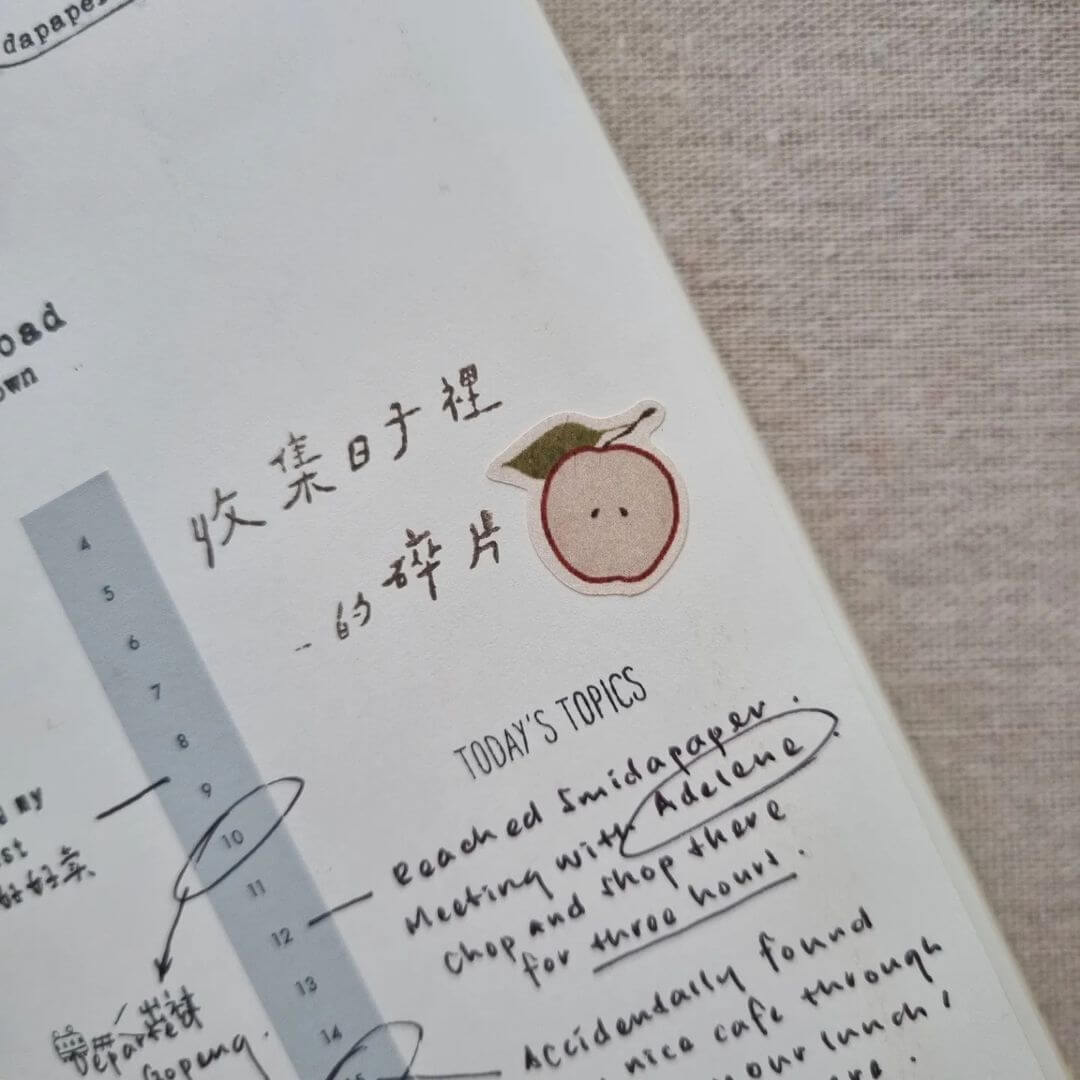 dapape
oad
own
收集日子裡
..的碎片
4
5
6
7
8
9
10
11
12
13
14
15
my
st
好好卖
Gopeng.
TODAY'S TOPICS
Reached Smidapaper.
Meeting with Adelene.
Chop and shop there
for three hours.
Accidendally found
nice cafe through
our lunch!